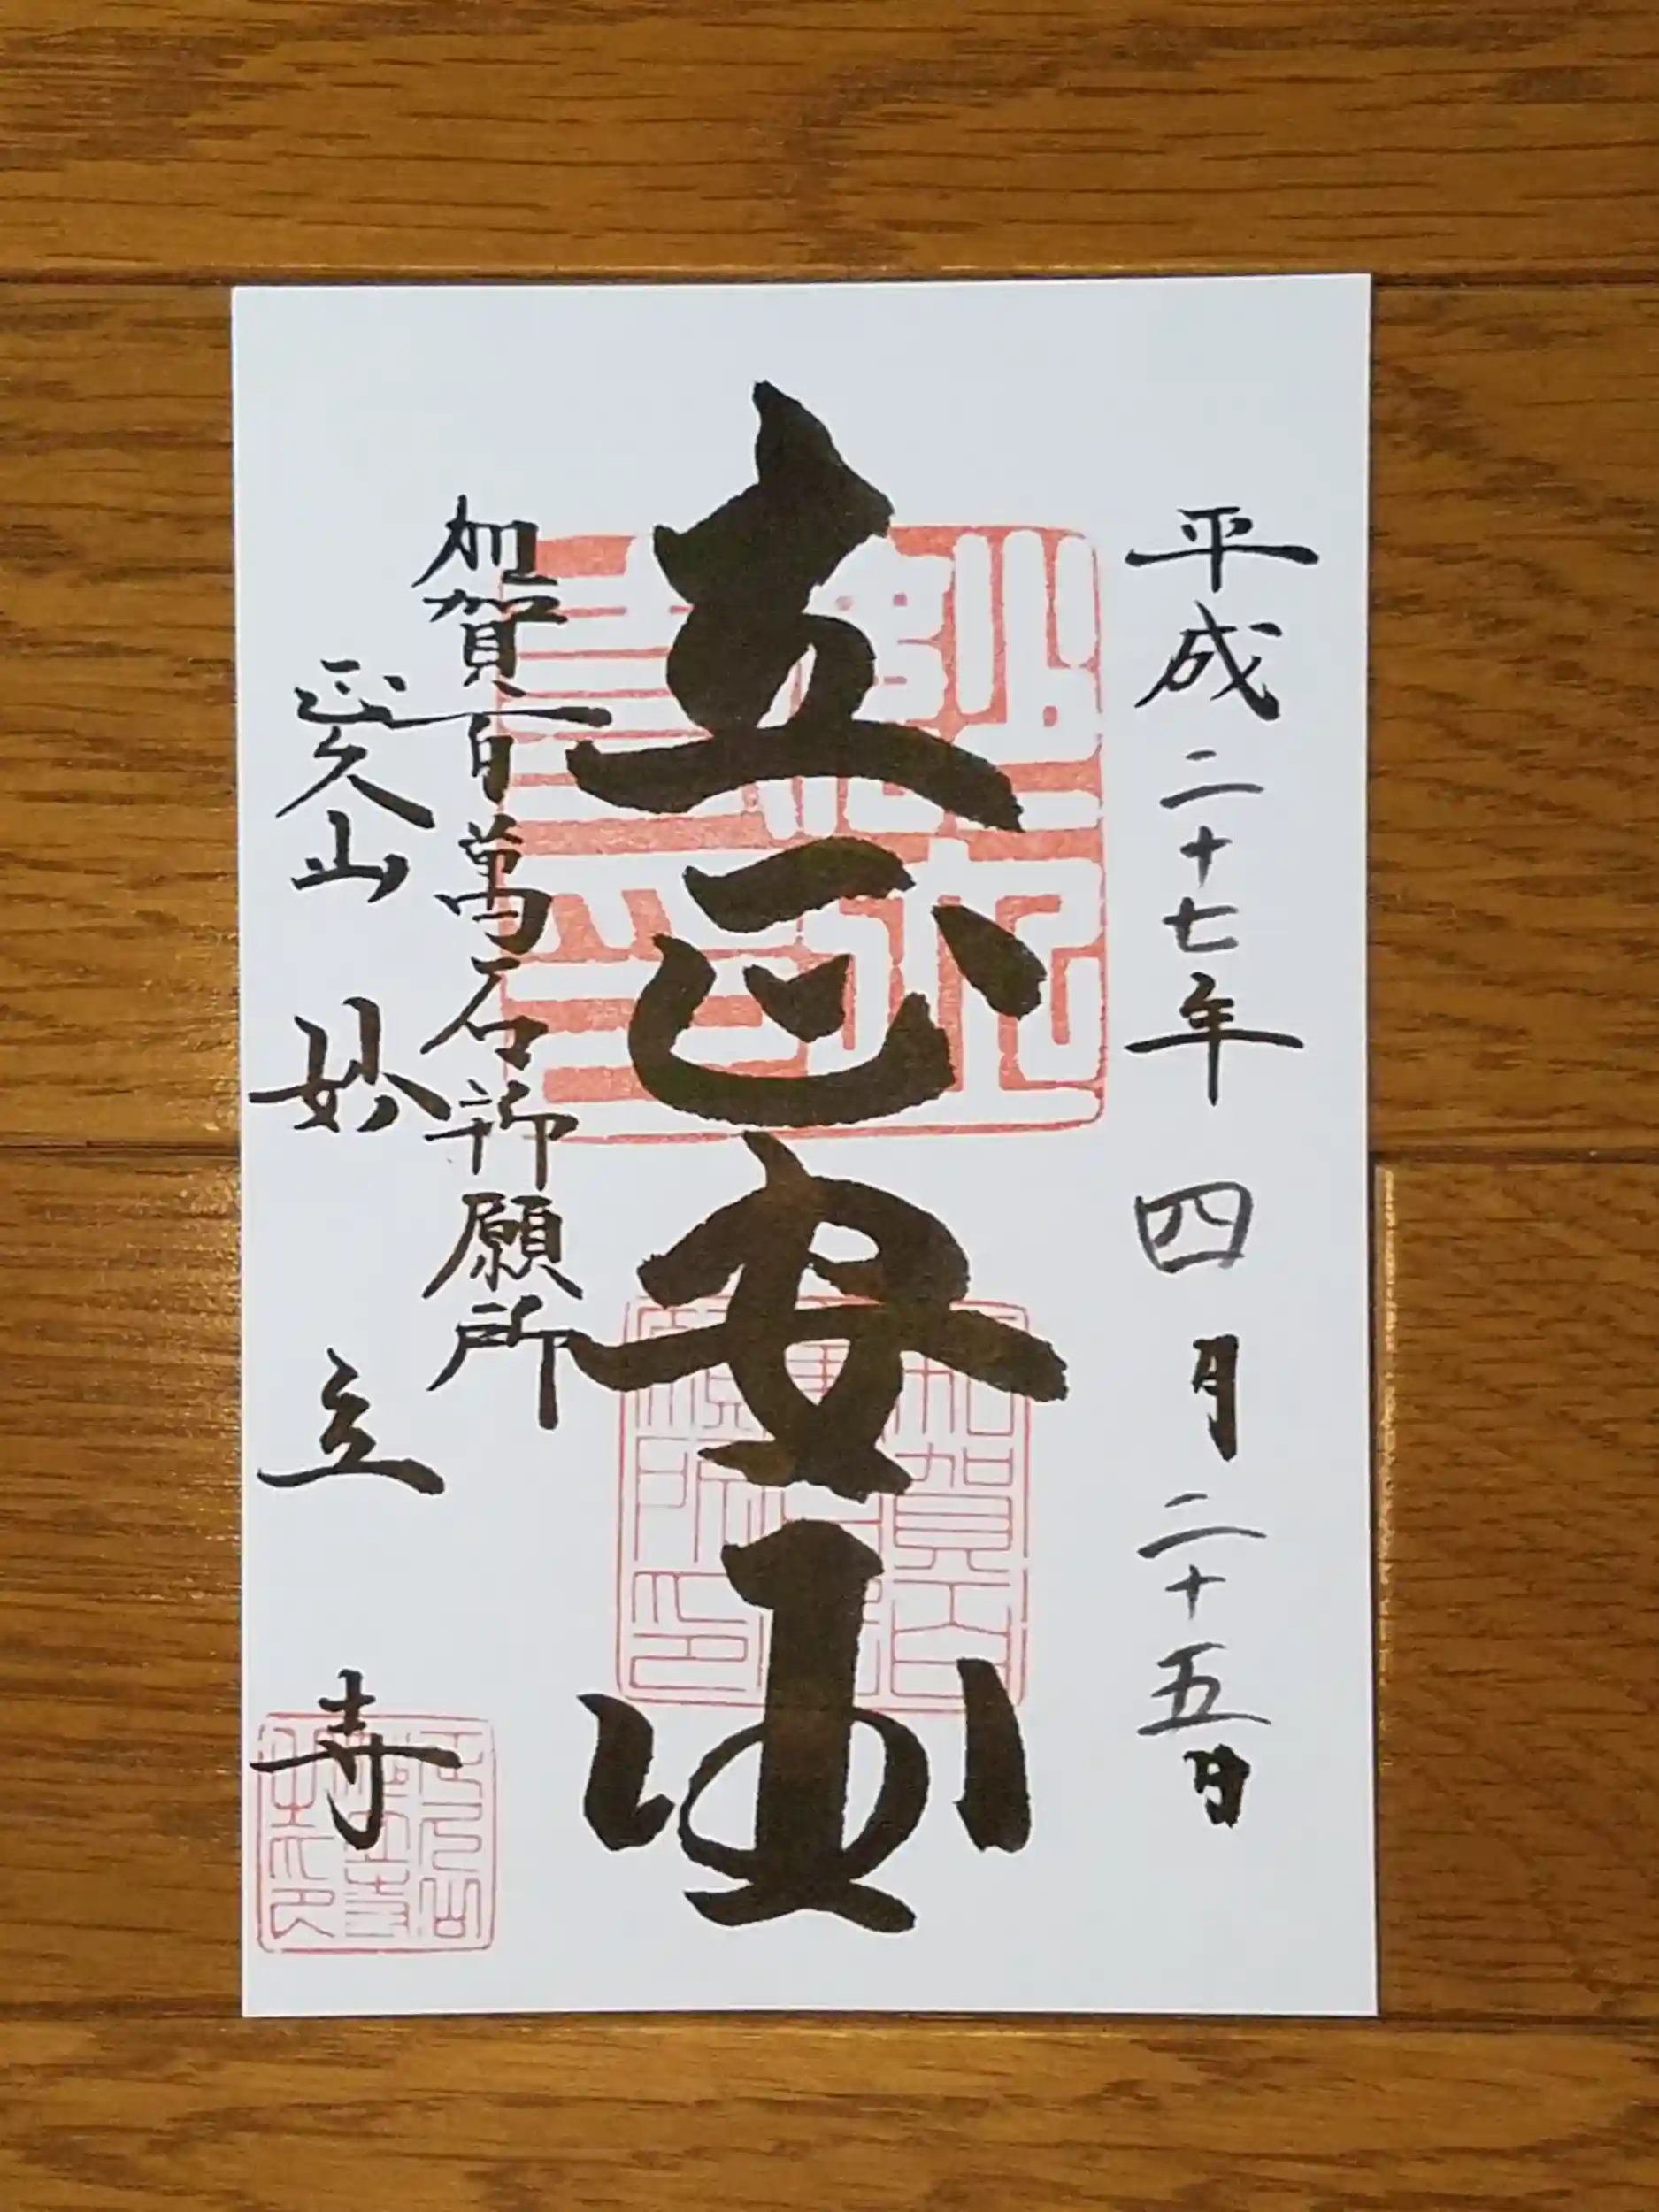 平成二十七年 四月二十五日
立正安国
加賀百萬石祈願所
正久山 妙立寺